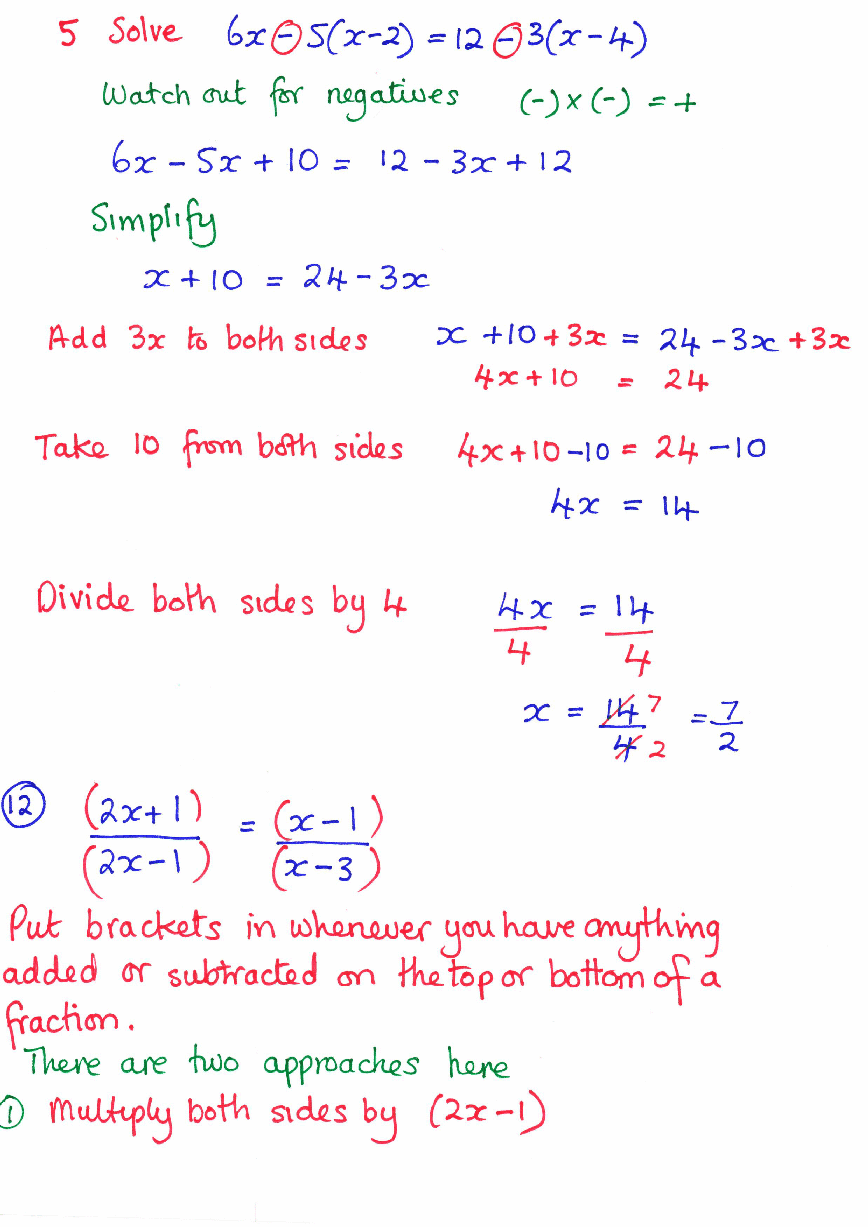 5 Solve 6x - 5(x-2) = 12 - 3(x-4)
Watch out for negatives (-) x (-) = +
6x - 5x + 10 = 12 - 3x + 12
Simplify
x + 10 = 24 - 3x
Add 3x to both sides x + 10 + 3x = 24 - 3x + 3x
4x + 10 = 24
Take 10 from both sides 4x + 10 - 10 = 24 - 10
4x = 14
Divide both sides by 4 4x/4 = 14/4
x = 14/4 7/2 = 7/2
12 (2x+1)/(2x-1) = (x-1)/(x-3)
Put brackets in whenever you have anything
added or subtracted on the top or bottom of a
fraction.
There are two approaches here
1 Multiply both sides by (2x-1)